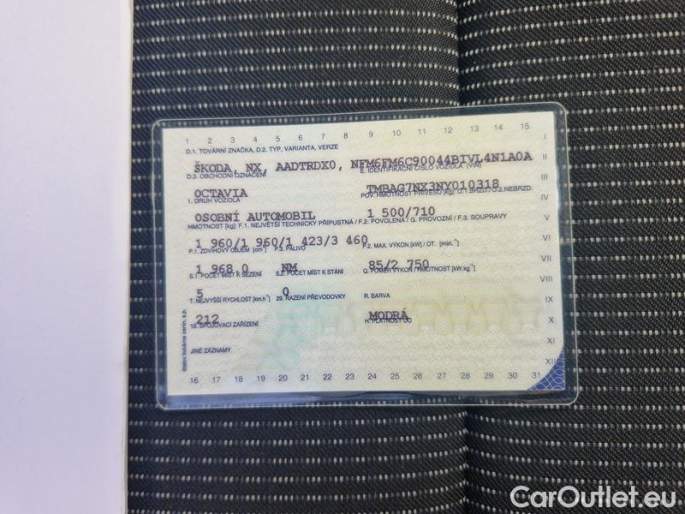 1 2 3 4 5 6 7 8 9 10 11 12 13 14 15
D.1. TOVÁRNÍ ZNAČKA, D.2. TYP, VARIANTA, VERZE
ŠKODA, NX, AADTRDX0, NFM6FM6C90044BIVL4N1A0A
D.3. OBCHODNÍ OZNAČENÍ E. IDENTIFIKAČNÍ ČÍSLO VOZIDLA (VIN)
OCTAVIA TMBAG7NX3NY010318
1. DRUH VOZIDLA POV. HMOTNOST PŘÍVĚSU [kg] O.1. BRZD./O.2. NEBRZD.
OSOBNÍ AUTOMOBIL 1 500/710
HMOTNOST [kg] F.1. NEJVĚTŠÍ TECHNICKY PŘÍPUSTNÁ / F.2. POVOLENÁ / G. PROVOZNÍ / F.3. SOUPRAVY
1 960/1 960/1 423/3 460
P.1. ZDVIHOVÝ OBJEM [cm³] P.3. PALIVO P.2. MAX. VÝKON [kW] / OT. [min⁻¹]
1 968.0 NM 85/2 750
S.1. POČET MÍST K SEZENÍ S.2. POČET MÍST K STÁNÍ Q. POMĚR VÝKON / HMOTNOST [kW.kg⁻¹]
5 0
T. NEJVYŠŠÍ RYCHLOST [km.h⁻¹] 29. ŘAZENÍ PŘEVODOVKY R. BARVA
212 MODRÁ
18. SPOJOVACÍ ZAŘÍZENÍ H. PLATNOST DO
JINÉ ZÁZNAMY
16 17 18 19 20 21 22 23 24 25 26 27 28 29 30 31
I
II
V
VI
VII
VIII
IX
X
XI
XII
CarOutlet.eu